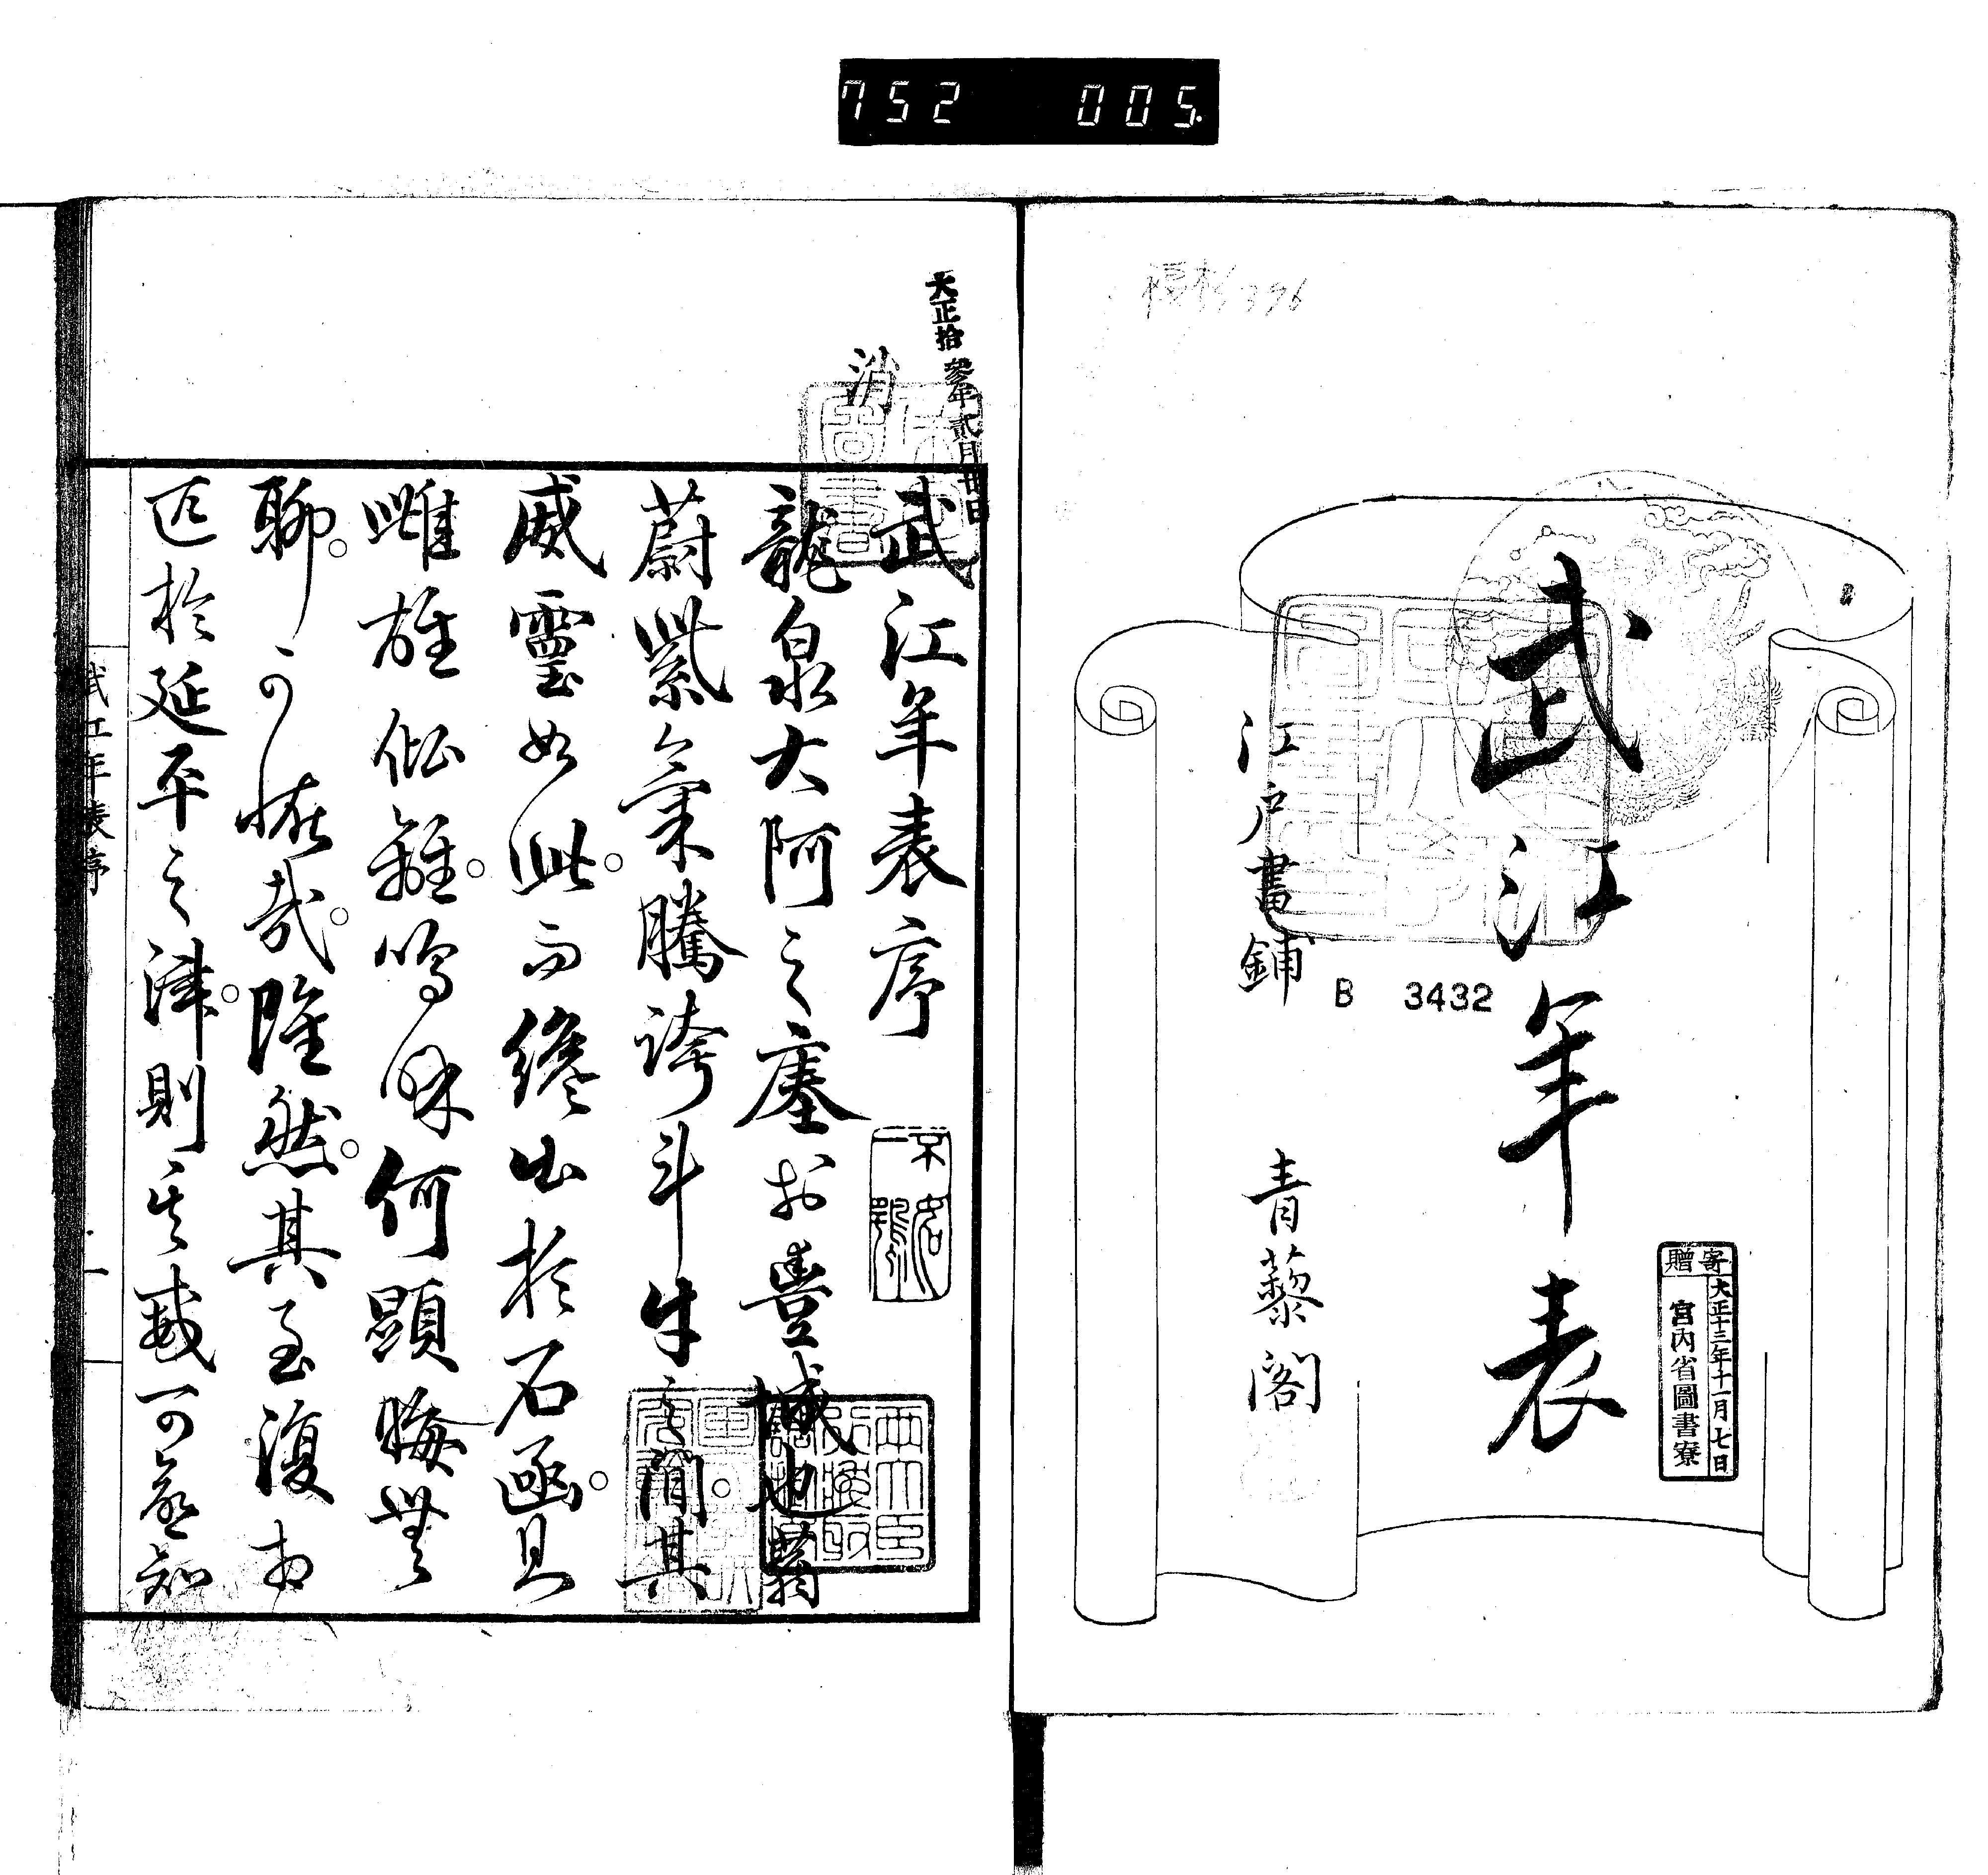 752 005
武江年表
江戸書鋪 青藜閣
B 3432
寄贈
大正十三年十一月七日
宮内省圖書寮
大正拾參年貳月廿日
消
武江年表序
龍泉大阿之瘞於豐城也蓊
蔚紫氣騰誇斗牛之間其
威靈如此而纔出於石函具
雌雄似雞鳴
何顯晦無
聊可怪哉雖然其至復
於延平之津則其威可知
武江年表序
一